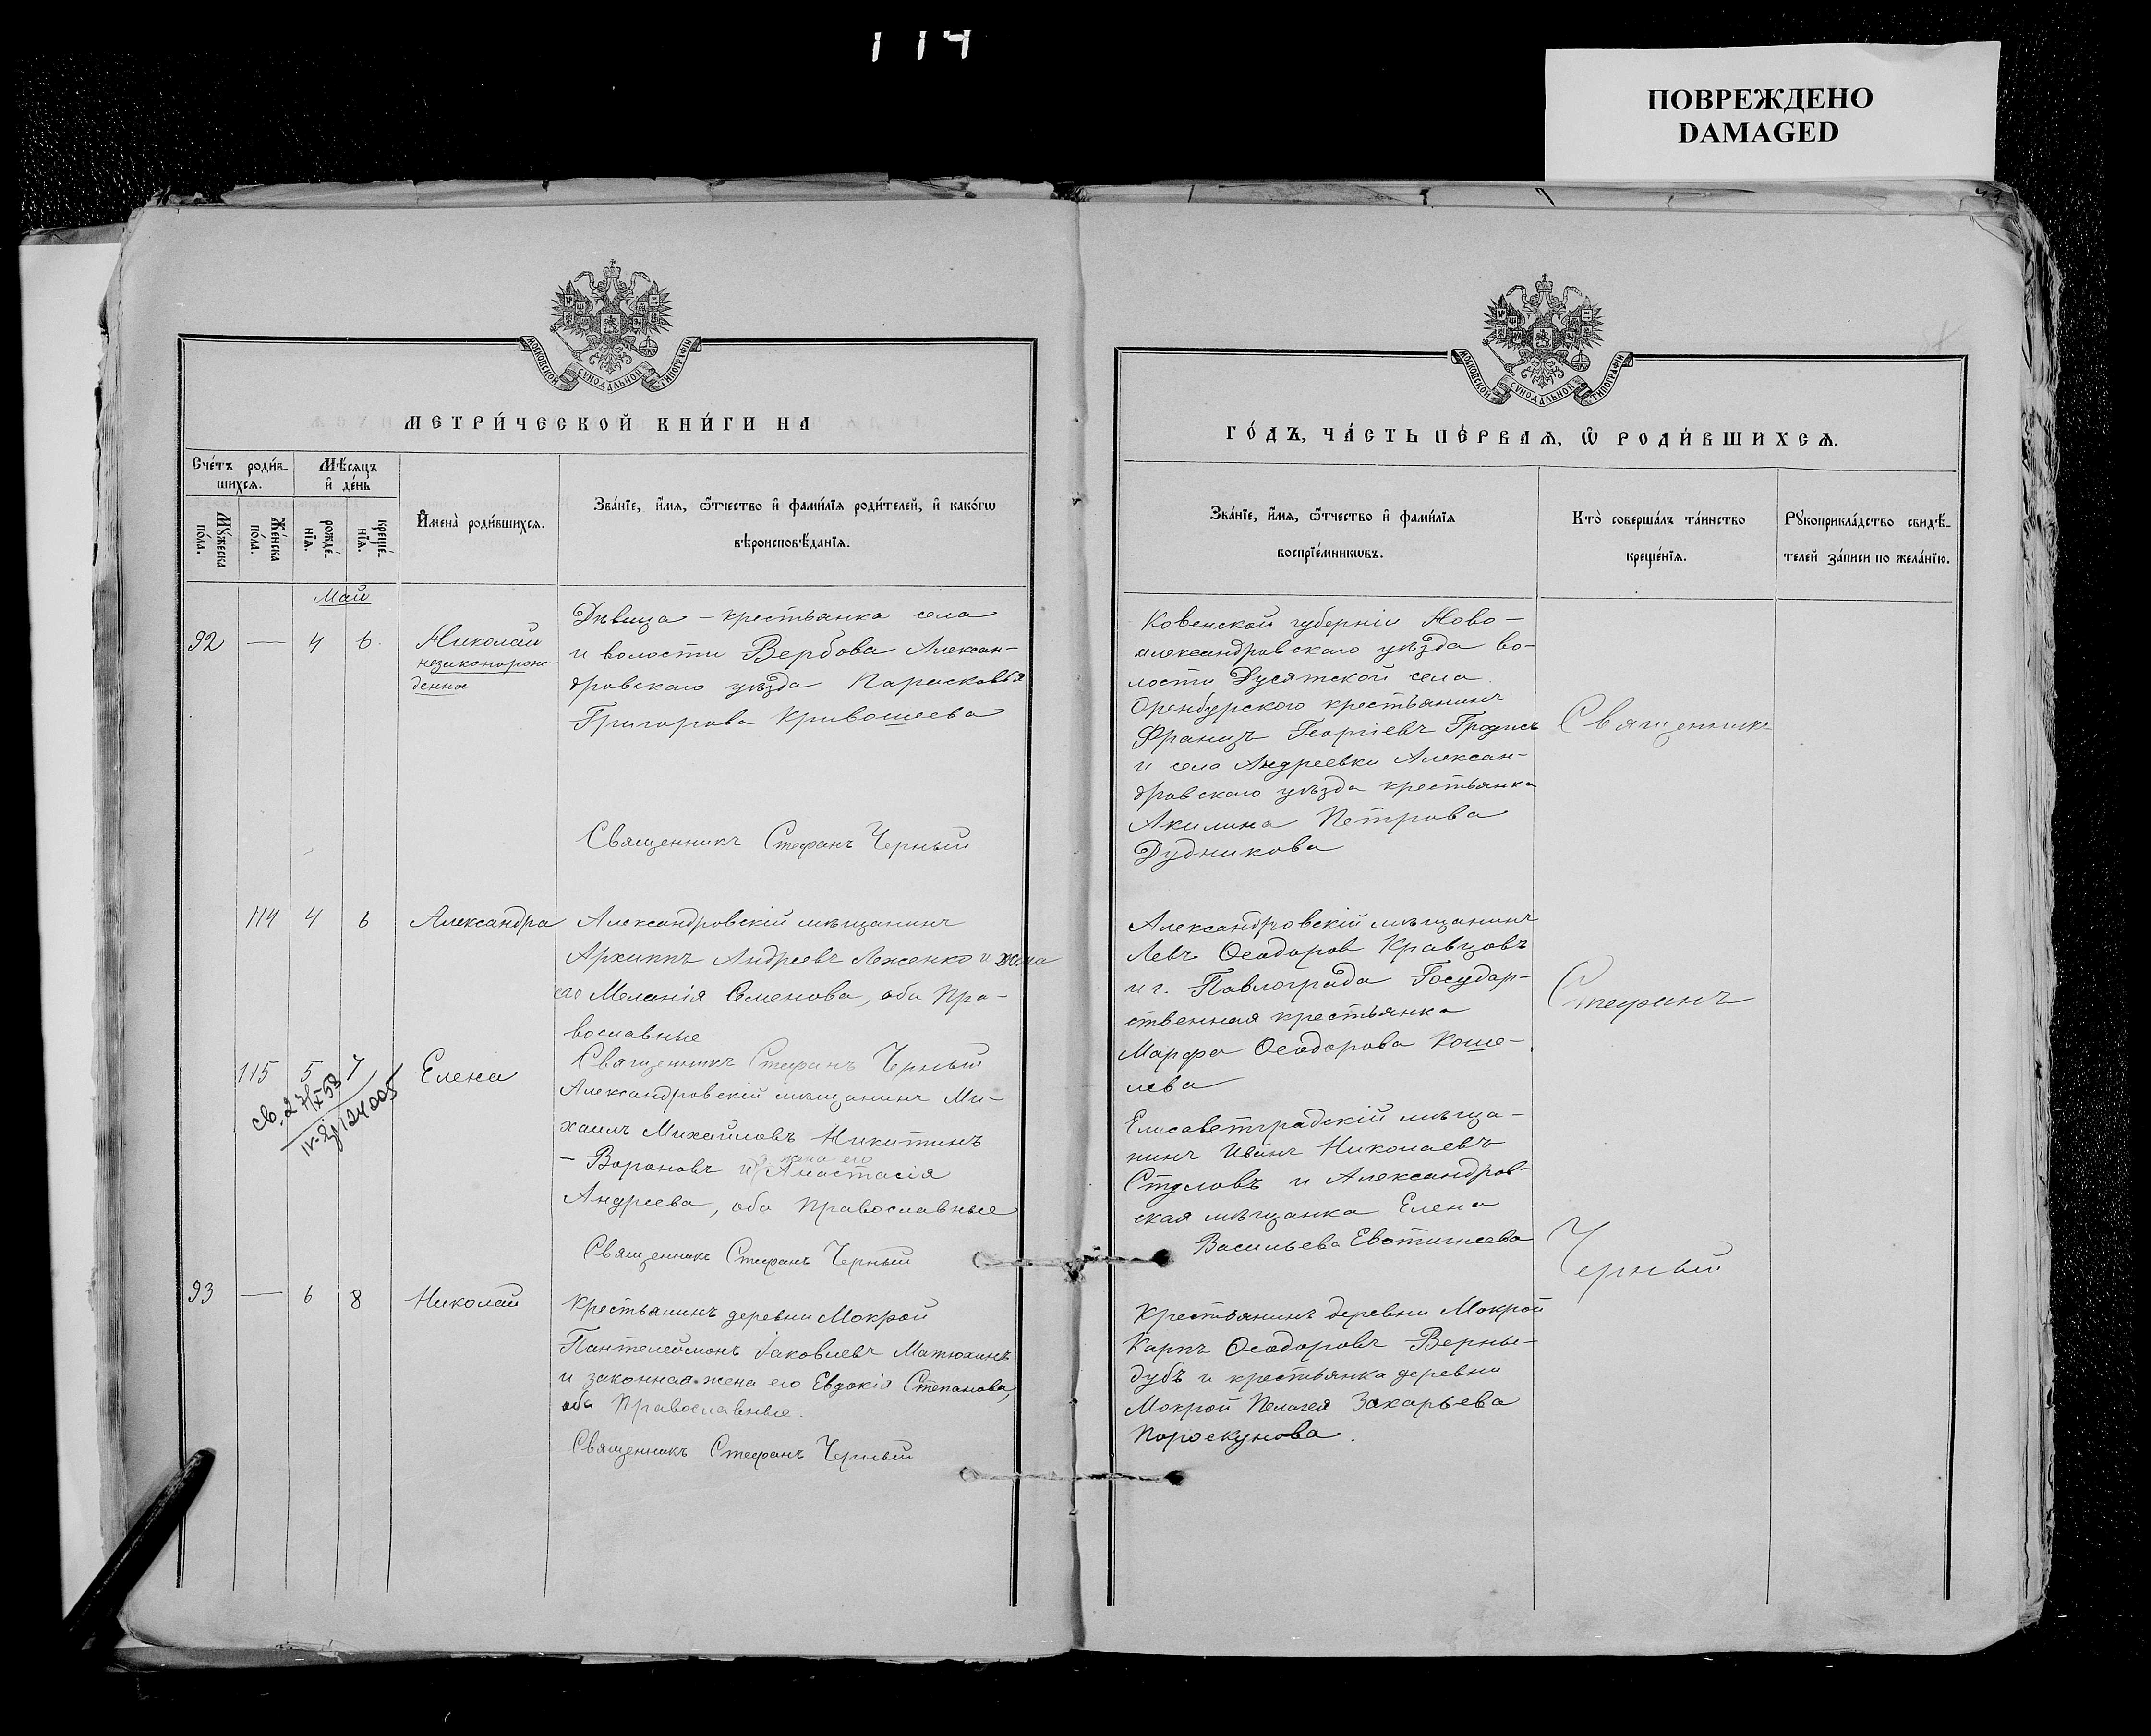 114
ПОВРЕЖДЕНО
DAMAGED
МОСКОВСКОЙ СѴНОДАЛЬНОЙ ТИПОГРАФІИ
МЕТРИ́ЧЕСКОЙ КНИ́ГИ НА
Сче́тъ роди́в-
шихсѧ.
Мѣ́сѧцъ
и҆ де́нь
Мꙋ́жеска
по́ла.
Же́нска
по́ла.
рожде́-
нїѧ.
креще́-
нїѧ.
И҆мена̀ роди́вшихсѧ.
Зва́нїе, и҆́мѧ, ѻ҆́тчество и҆ фами́лїѧ роди́телей, и҆ како́гѡ
вѣроисповѣ́данїѧ.
Май
92 — 4 6. Николай
незаконорож-
денно
Дѣвица – крестьянка села
и волости Вербова Алексан-
дровскаго уѣзда Парасковья
Григорова Кривошеева
Священникъ Стефанъ Черный
114 4 6 Александра
Александровскій мѣщанинъ
Архиппъ Андреевъ Леженко и жена
его Меланія Семенова, оба Пра-
вославные
Священникъ Стефанъ Черный
115 5 7 Елена
св. 27/X 58
124005
Александровскій мѣщанинъ Ми-
хаилъ Михайловъ Никитинъ
жена его
– Вороновъ и Анастасія
Андреева, оба Православные
Священникъ Стефанъ Черный
93 — 6 8 Николай
Крестьянинъ деревни Мокрой
Пантелеймонъ Іаковлевъ Матюхинъ
и законная жена его Евдокія Степанова,
оба Православные.
Священникъ Стефанъ Черный
МОСКОВСКОЙ СѴНОДАЛЬНОЙ ТИПОГРАФІИ
ГО́ДЪ, ЧА́СТЬ ПЕ́РВАѦ, Ѡ҆ РОДИ́ВШИХСѦ.
Зва́нїе, и҆́мѧ, ѻ҆́тчество и҆ фами́лїѧ
воспрїе́мникѡвъ.
Кто̀ соверша́лъ та́инство
креще́нїѧ.
Рꙋкоприкла́дство свидѣ́-
телей за́писи по жела́нїю.
Ковенской губерніи Ново-
александровскаго уѣзда во-
лости Дусятской села
Оренбурского крестьянинъ
Францъ Георгіевъ Гродисъ
и села Андреевки Алексан-
дровскаго уѣзда крестьянка
Акилина Петрова
Дудникова
Священникъ
Александровскій мѣщанинъ
Левъ Ѳеодоров Кравцовъ
и г. Павлограда Государ-
ственная крестьянка
Марфа Ѳеодорова Коше-
лева
Стефанъ
Елисаветградскій мѣща-
нинъ Иванъ Николаевъ
Стуловъ и Александров-
ская мѣщанка Елена
Васильева Евстигнеева
Черный
Крестьянинъ деревни Мокрой
Карпъ Ѳеодоровъ Верны-
дубъ и крестьянка деревни
Мокрой Пелагея Захарьева
Пороскунова.